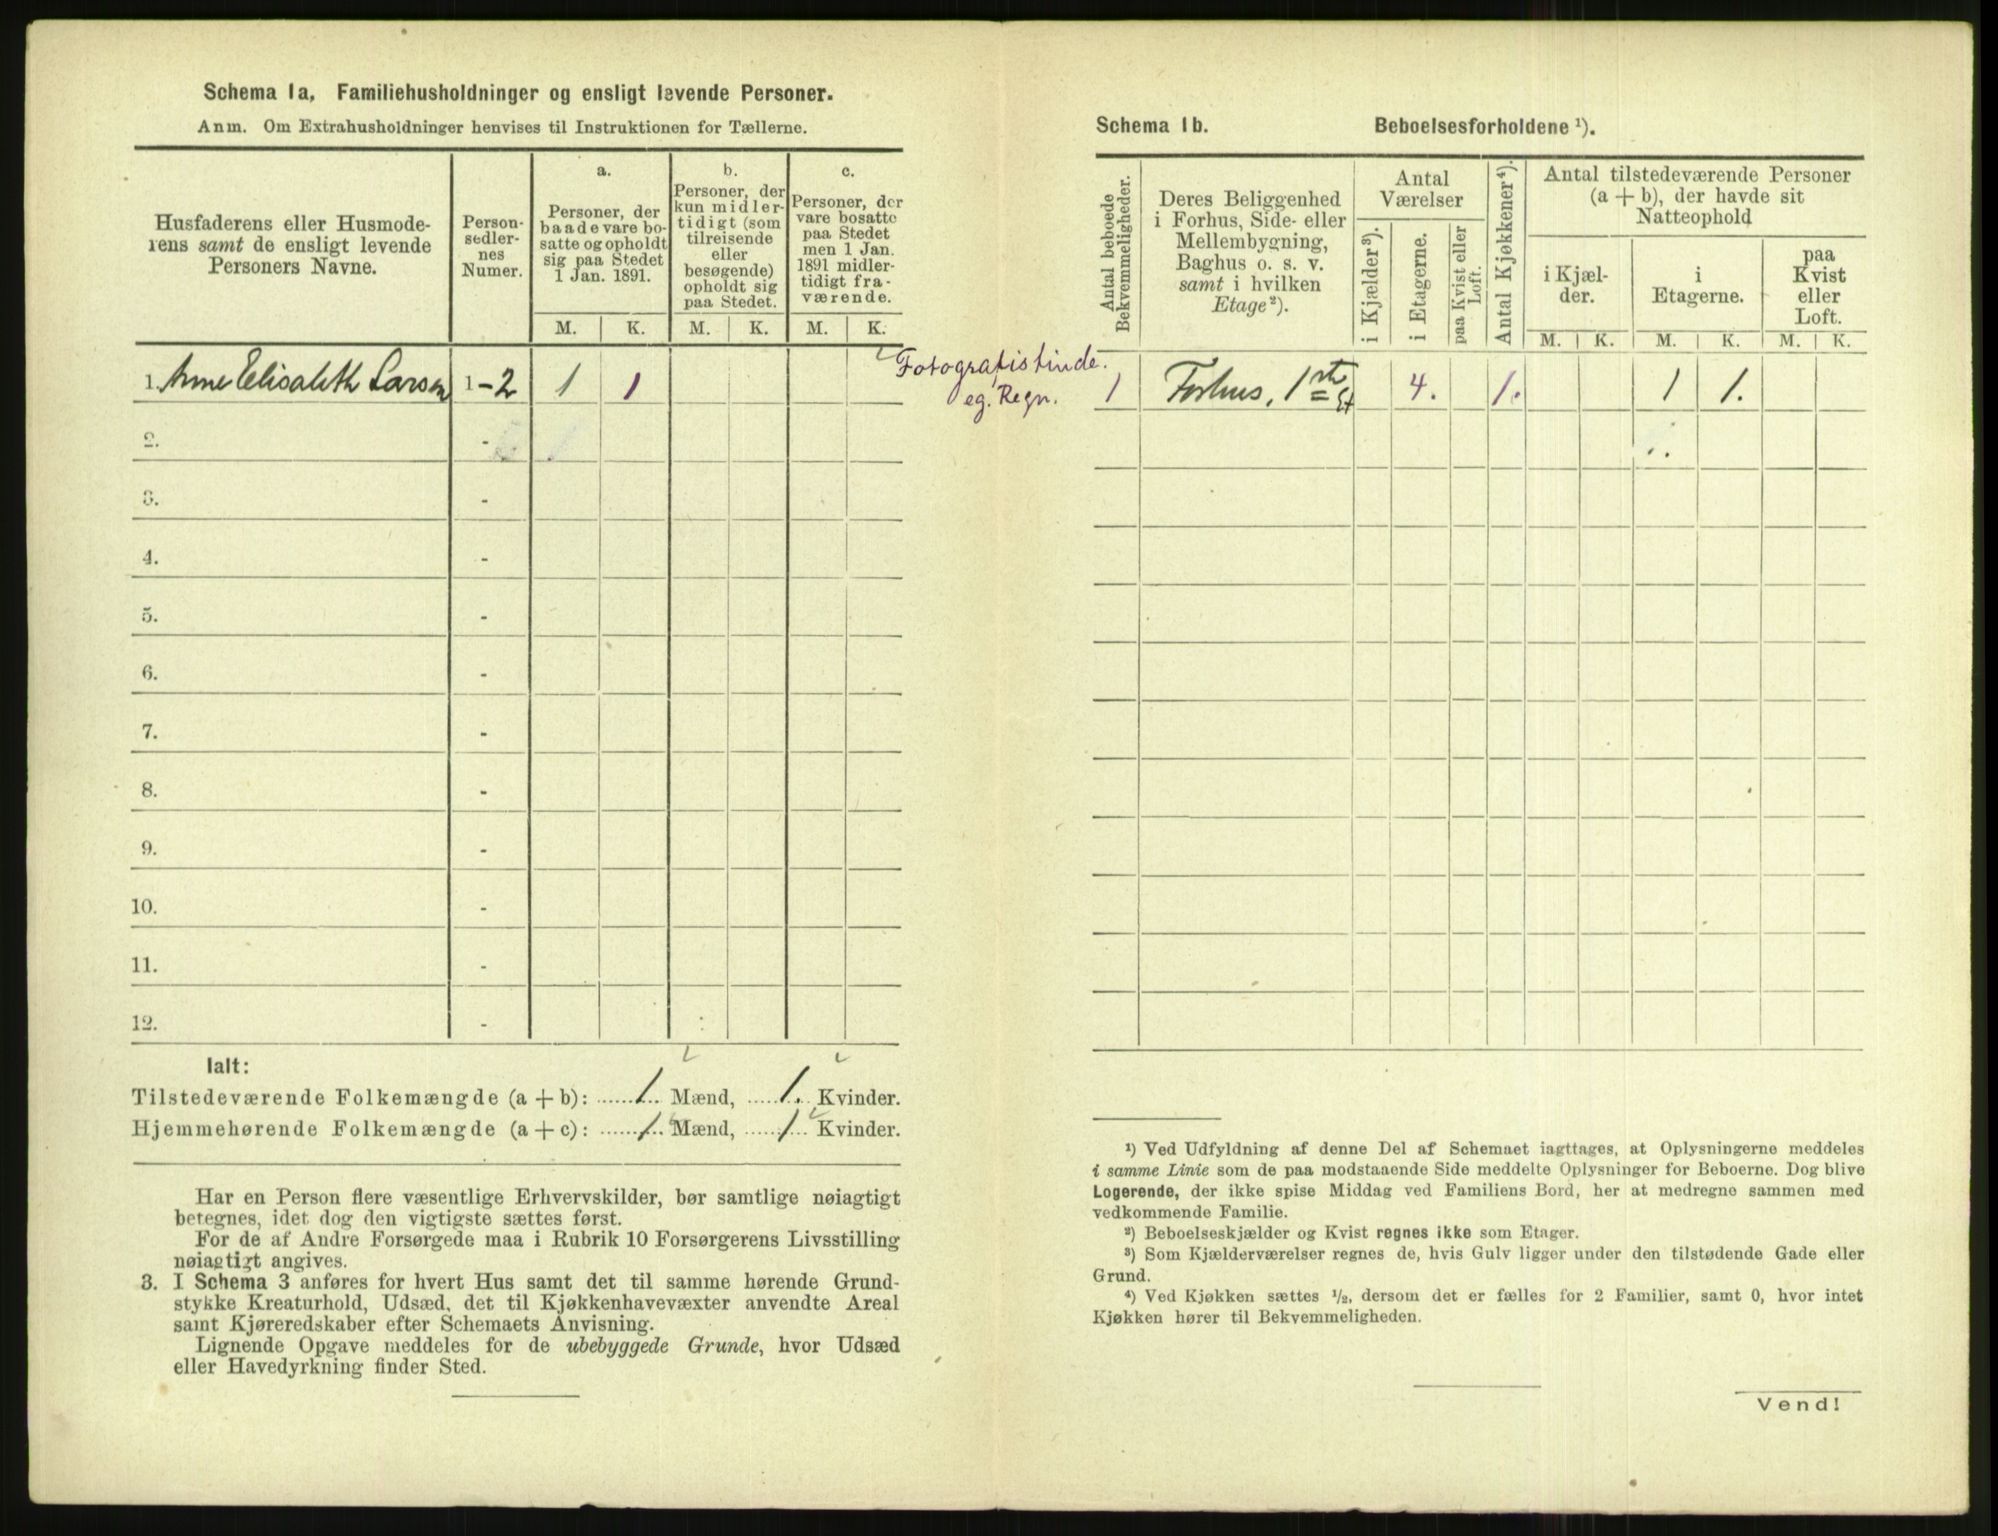 Schema 1a. Familiehusholdninger og ensligt levende Personer.
Anm. Om Extrahusholdninger henvises til Instruktionen for Tællerne.
Husfaderens eller Husmode-
rens samt de ensligt levende
Personers Navne.
Person-
sedler-
nes
Numer.
a.
Personer, der
baade vare bo-
satte og opholdt
sig paa Stedet
1 Jan. 1891.
b.
Personer, der
kun midler-
tidigt (som
tilreisende
eller
besøgende)
opholdt sig
paa Stedet.
c.
Personer, der
vare bosatte
paa Stedet
men 1 Jan.
1891 midler-
tidigt fra-
værende.
M. K. M. K. M. K.
1. Anne Elisabeth Larsen 1 - 2 1 1
Fotografistinde.
eg. Regn.
2. -
3. -
4. -
5. -
6. -
7. -
8. -
9. -
10. -
11. -
12. -
Ialt:
Tilstedeværende Folkemængde (a + b): 1. Mænd, 1. Kvinder.
Hjemmehørende Folkemængde (a + c): 1. Mænd, 1. Kvinder.
Har en Person flere væsentlige Erhvervskilder, bør samtlige nøiagtigt
betegnes, idet dog den vigtigste sættes først.
For de af Andre Forsørgede maa i Rubrik 10 Forsørgerens Livsstilling
nøiagtigt angives.
3. I Schema 3 anføres for hvert Hus samt det til samme hørende Grund-
stykke Kreaturhold, Udsæd, det til Kjøkkenhavevæxter anvendte Areal
samt Kjøreredskaber efter Schemaets Anvisning.
Lignende Opgave meddeles for de ubebyggede Grunde, hvor Udsæd
eller Havedyrkning finder Sted.
Schema 1b. Beboelsesforholdene ¹).
Antal beboede
Bekvemmeligheder.
Deres Beliggenhed
i Forhus, Side- eller
Mellembygning,
Baghus o. s. v.
samt i hvilken
Etage²).
Antal
Værelser
i Kjælder³).
i Etagerne.
paa Kvist eller
Loft.
Antal Kjøkkener⁴).
Antal tilstedeværende Personer
(a + b), der havde sit
Natteophold
i Kjæl-
der.
i
Etagerne.
paa
Kvist
eller
Loft.
M. K. M. K. M. K.
1 Forhus, 1ste Et 4. 1. 1 1.
¹) Ved Udfyldning af denne Del af Schemaet iagttages, at Oplysningerne meddeles
i samme Linie som de paa modstaaende Side meddelte Oplysninger for Beboerne. Dog blive
Logerende, der ikke spise Middag ved Familiens Bord, her at medregne sammen med
vedkommende Familie.
²) Beboelseskjælder og Kvist regnes ikke som Etager.
³) Som Kjælderværelser regnes de, hvis Gulv ligger under den tilstødende Gade eller
Grund.
⁴) Ved Kjøkken sættes ½, dersom det er fælles for 2 Familier, samt 0, hvor intet
Kjøkken hører til Bekvemmeligheden.
Vend!